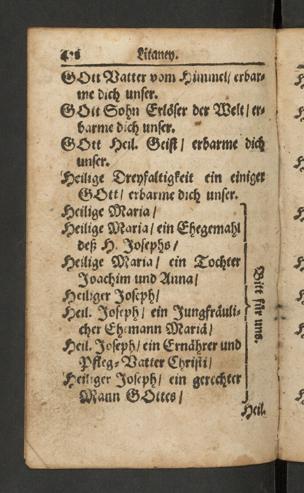 Litaney.
GOtt Vatter vom Himmel/ erbar-
me dich unser.
GOtt Sohn Erlöser der Welt/ er-
barme dich unser.
GOtt Heil. Geist/ erbarme dich
unser.
Heilige Dreyfaltigkeit ein einiger
GOtt/ erbarme dich unser.
Heilige Maria/
Heilige Maria/ ein Ehegemahl
deß H. Josephs/
Heilige Maria/ ein Tochter
Joachim und Anna/
Heiliger Joseph/
Heil. Joseph/ ein Jungfräuli-
cher Ehemann Mariä/
Heil. Joseph/ ein Ernährer und
Pfleg-Vatter Christi/
Heiliger Joseph/ ein gerechter
Mann GOttes/
Bitt für uns.
Heil.